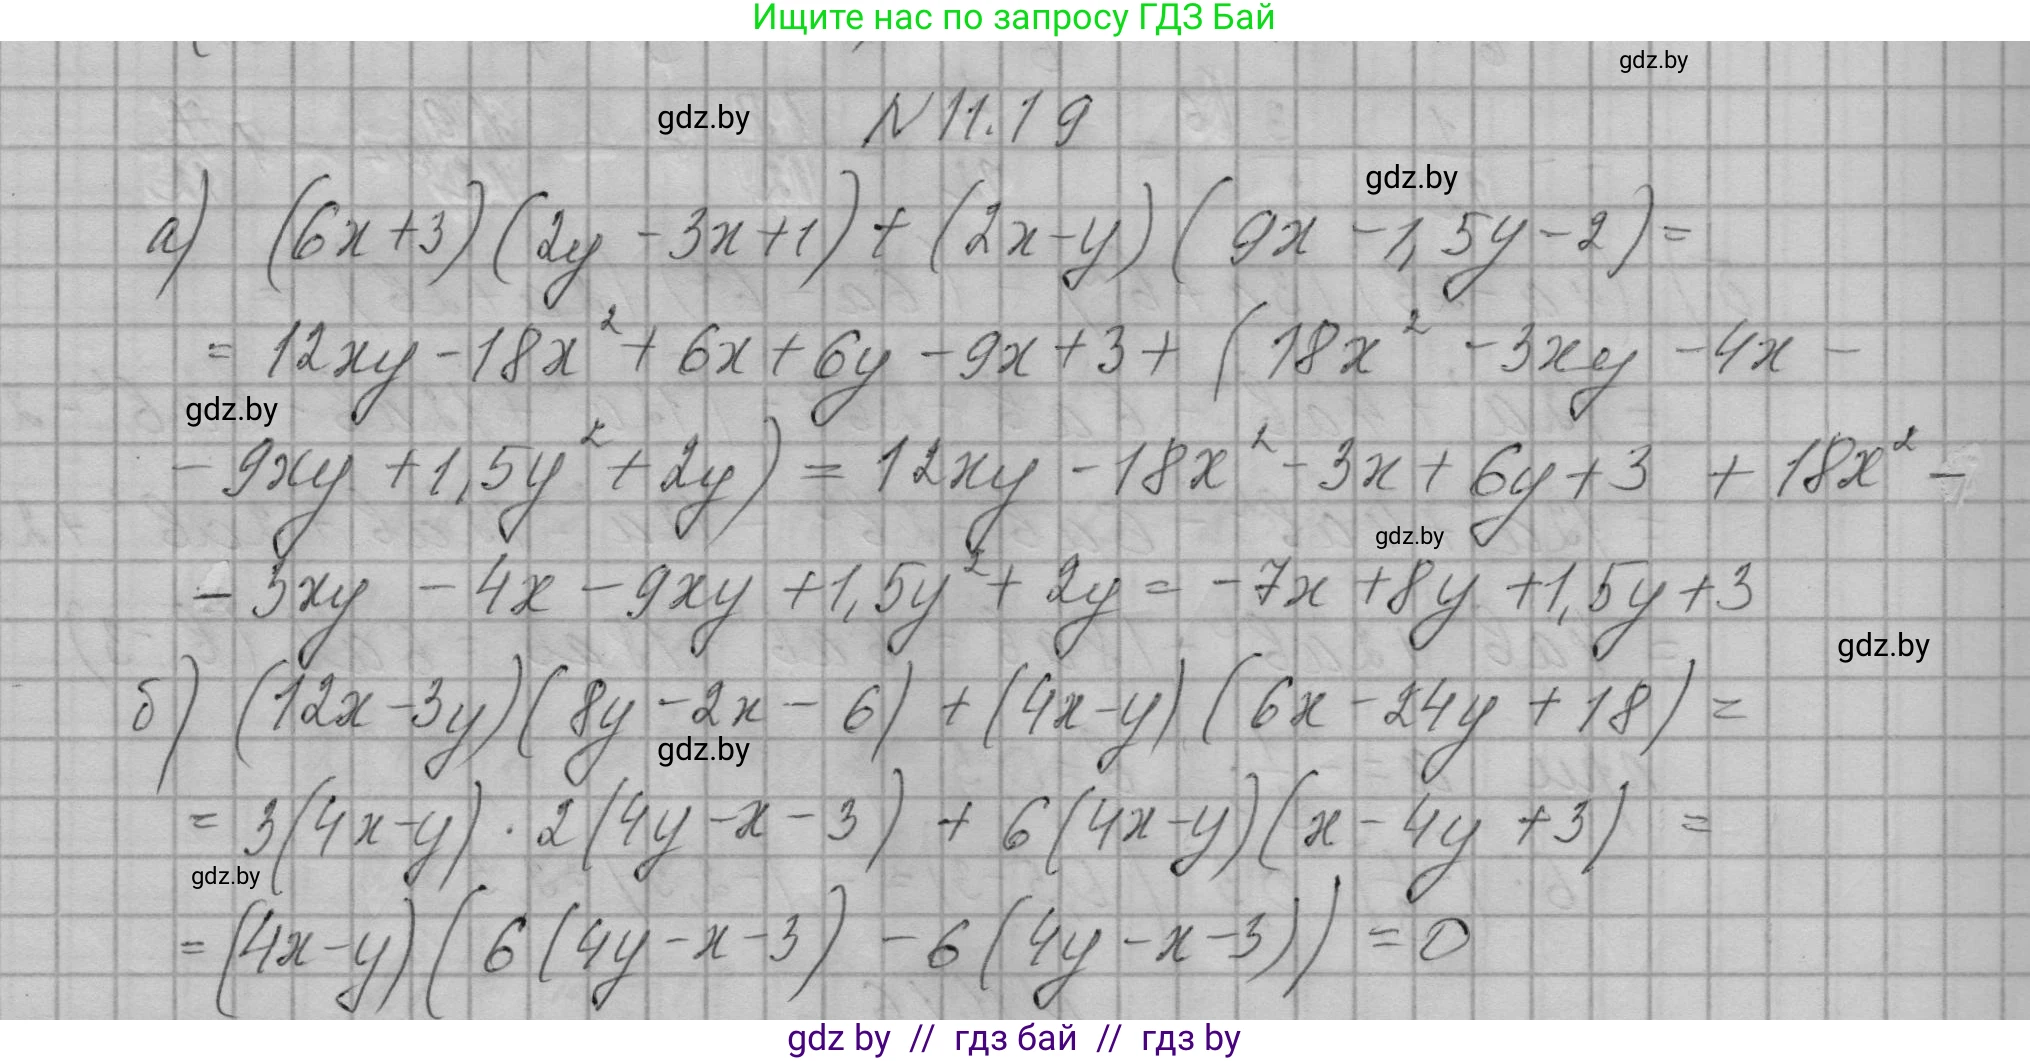 Ищите нас по запросу ГДЗ Бай
gdz.by
gdz.by
N 11.19
gdz.by
а) (6x+3)(2y-3x+1)+(2x-y)(9x-1,5y-2)=
= 12xy-18x²+6x+6y-9x+3+(18x²-3xy-4x-
gdz.by
-9xy+1,5y²+2y)=12xy-18x²-3x+6y+3+18x²-
gdz.by
-3xy-4x-9xy+1,5y²+2y=-7x+8y+1,5y+3
gdz.by
б) (12x-3y)(8y-2x-6)+(4x-y)(6x-24y+18)=
gdz.by
= 3(4x-y)·2(4y-x-3)+6(4x-y)(x-4y+3)=
gdz.by
=(4x-y)(6(4y-x-3)-6(4y-x-3))=0
gdz by // гдз бай // гдз by